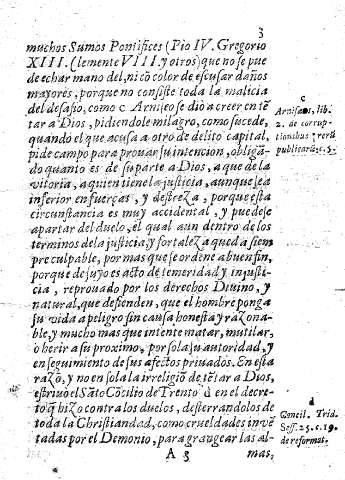 3
muchos Sumos Pontifices (Pio IV. Gregorio
XIII. Clemente VIII. y otros) que no se pue
de echar mano del, ni cõ color de escusar daños
mayores, porque no consiste toda la malicia
del desafio, como c Arniseo se diò a creer en tẽ
tar a Dios, pidiendole milagro, como sucede,
quando el que acusa a otro de delito capital,
pide campo para prouar su intencion, obligã-
do quanto es de su parte a Dios, a que dè la
vitoria, a quien tiene la justicia, aunque sea
inferior en fuerças, y destreza, porque esta
circunstancia es muy accidental, y puedese
apartar del duelo, el qual aun dentro de los
terminos de la justicia, y fortaleza queda siem
pre culpable, por mas que se ordene a buen fin,
porque de suyo es acto de temeridad y injusti-
cia, reprouado por los derechos Diuino, y
natural, que defienden, que el hombre ponga
su vida a peligro sin causa honesta y razona-
ble, y mucho mas que intente matar, mutilar,
o herir a su proximo, por sola su autoridad, y
en seguimiento de sus afectos priuados. En esta
razõ, y no en sola la irreligiõ de tẽtar a Dios,
estriuò el Sãto Cõcilio de Trento d en el decre-
to q̃ hizo contra los duelos, desterrandolos de
toda la Christiandad, como crueldades inuẽ-
tadas por el Demonio, para grangear las al-
A 3 mas,
c
Arnisæus, lib.
2. de corrup-
tionibus rerũ
publicarũ c. 5.
d
Concil. Trid.
Sess. 25. c. 19.
de reformat.